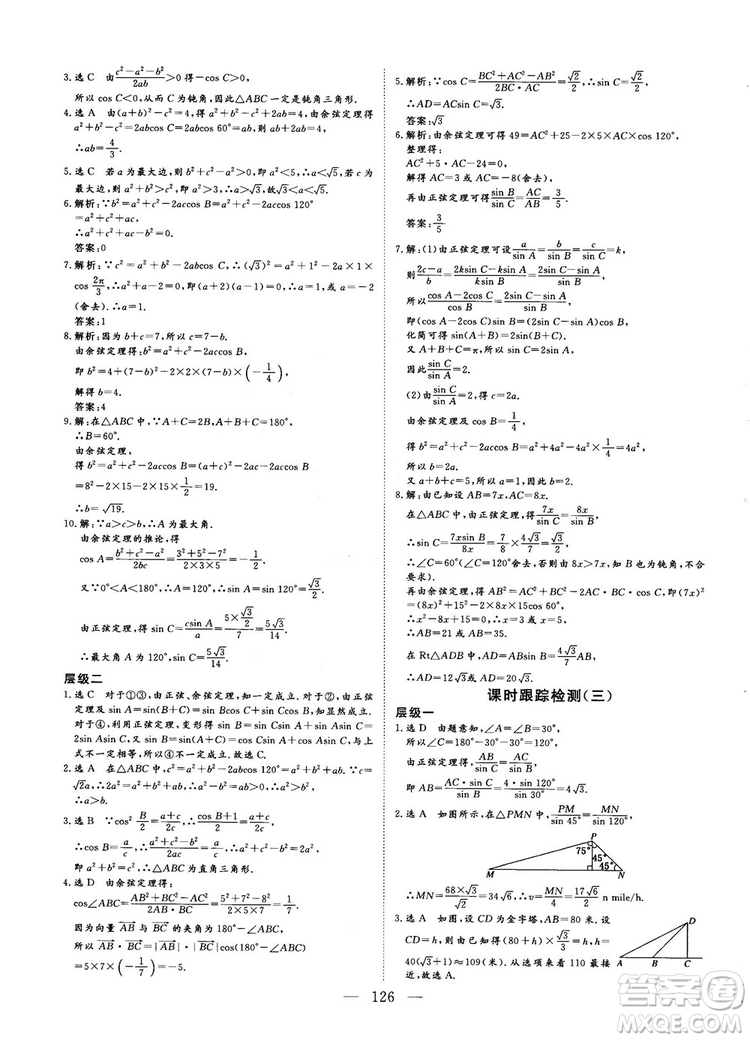 3. 选 C　由 (c²-a²-b²)/2ab>0 得-cos C>0,
所以 cos C<0,从而 C 为钝角,因此△ABC 一定是钝角三角形.
4. 选 A　由(a+b)²-c²=4,得 a²+b²-c²+2ab=4,由余弦定理得
a²+b²-c²=2abcos C=2abcos 60°=ab,则 ab+2ab=4,
∴ab=4/3.
5. 选 C　若 a 为最大边,则 b²+c²-a²>0,即 a²<5,∴a<√5,若 c 为
最大边,则 a²+b²>c²,即 a²>3,∴a>√3,故√3<a<√5.
6. 解析:∵b²=a²+c²-2accos B=a²+c²-2accos 120°
=a²+c²+ac,
∴a²+c²+ac-b²=0.
答案:0
7. 解析:∵c²=a²+b²-2abcos C,∴(√3)²=a²+1²-2a×1×
cos 2π/3,∴a²+a-2=0,即(a+2)(a-1)=0,∴a=1,或 a=-2
(舍去).∴a=1.
答案:1
8. 解析:因为 b+c=7,所以 c=7-b.
由余弦定理得:b²=a²+c²-2accos B,
即 b²=4+(7-b)²-2×2×(7-b)×(-1/4),
解得 b=4.
答案:4
9. 解:在△ABC 中,∵A+C=2B,A+B+C=180°,
∴B=60°.
由余弦定理,
得 b²=a²+c²-2accos B=(a+c)²-2ac-2accos B
=8²-2×15-2×15×1/2=19.
∴b=√19.
10. 解:∵a>c>b,∴A 为最大角.
由余弦定理的推论,得
cos A=(b²+c²-a²)/2bc=(3²+5²-7²)/(2×3×5)=-1/2.
又∵0°<A<180°,∴A=120°,∴sin A=sin 120°=√3/2.
由正弦定理,得 sin C=csin A/a=(5×√3/2)/7=5√3/14.
∴最大角 A 为 120°,sin C=5√3/14.
层级二
1. 选 C　对于①③,由正弦、余弦定理,知一定成立.对于②,由正弦
定理及 sin A=sin(B+C)=sin Bcos C+sin Ccos B,知显然成立.
对于④,利用正弦定理,变形得 sin B=sin Csin A+sin Asin C=
2sin Asin C,又 sin B=sin(A+C)=cos Csin A+cos Asin C,与上
式不一定相等,所以④不一定成立.故选 C.
2. 选 A　在△ABC 中,c²=a²+b²-2abcos 120°=a²+b²+ab.∵c=
√2a,∴2a²=a²+b²+ab.∴a²=b²+ab>b²,
∴a>b.
3. 选 B　∵cos² B/2=(a+c)/2c,∴(cos B+1)/2=(a+c)/2c,
∴cos B=a/c,∴(a²+c²-b²)/2ac=a/c,
即 a²+b²=c²,∴△ABC 为直角三角形.
4. 选 D　由余弦定理得:
cos∠ABC=(AB²+BC²-AC²)/(2AB·BC)=(5²+7²-8²)/(2×5×7)=1/7.
因为向量 AB 与 BC 的夹角为 180°-∠ABC,
所以 AB·BC=|AB|·|BC|cos(180°-∠ABC)
=5×7×(-1/7)=-5.
5. 解析:∵cos C=(BC²+AC²-AB²)/(2BC·AC)=√2/2,∴sin C=√2/2.
∴AD=ACsin C=√3.
答案:√3
6. 解析:由余弦定理可得 49=AC²+25-2×5×AC×cos 120°,
整理得:
AC²+5·AC-24=0,
解得 AC=3 或 AC=-8(舍去),
再由正弦定理可得 sin B/sin C=AC/AB=3/5.
答案:3/5
7. 解:(1)由正弦定理可设 a/sin A=b/sin B=c/sin C=k,
则(2c-a)/b=(2ksin C-ksin A)/ksin B=(2sin C-sin A)/sin B,
所以(cos A-2cos C)/cos B=(2sin C-sin A)/sin B,
即(cos A-2cos C)sin B=(2sin C-sin A)cos B,
化简可得 sin(A+B)=2sin(B+C).
又 A+B+C=π,所以 sin C=2sin A,
因此 sin C/sin A=2.
(2)由 sin C/sin A=2,得 c=2a.
由余弦定理及 cos B=1/4,
得 b²=a²+c²-2accos B=a²+4a²-4a²×1/4=4a²,
所以 b=2a.
又 a+b+c=5,所以 a=1,因此 b=2.
8. 解:由已知设 AB=7x,AC=8x.
在△ABC 中,由正弦定理得 7x/sin C=8x/sin B,
∴sin C=7xsin B/8x=7/8×4√3/7=√3/2,
∴∠C=60°(∠C=120°舍去,否则由 8x>7x,知 B 也为钝角,不合
要求).
再由余弦定理得 AB²=AC²+BC²-2AC·BC·cos C,即(7x)²
=(8x)²+15²-2×8x×15cos 60°,
∴x²-8x+15=0,∴x=3 或 x=5,
∴AB=21 或 AB=35.
在 Rt△ADB 中,AD=ABsin B=4√3/7AB,
∴AD=12√3 或 AD=20√3.
课时跟踪检测(三)
层级一
1. 选 D　由题意知,∠A=∠B=30°,
所以∠C=180°-30°-30°=120°,
由正弦定理,得 AB/sin C=AC/sin B,
即 AB=AC·sin C/sin B=4·sin 120°/sin 30°=4√3.
2. 选 A　如图所示,在△PMN 中,PM/sin 45°=MN/sin 120°,
P
75° 45°
45°
M N
∴MN=68×√3/√2=34√6,∴v=MN/4=17√6/2 n mile/h.
3. 选 A　如图,设 CD 为金字塔,AB=80 米.
设 CD=h,则由已知得(80+h)×√3/3=h,h=
40(√3+1)≈109(米).从选项来看 110 最接
近,故选 A.
D
A B C
126
答案圈